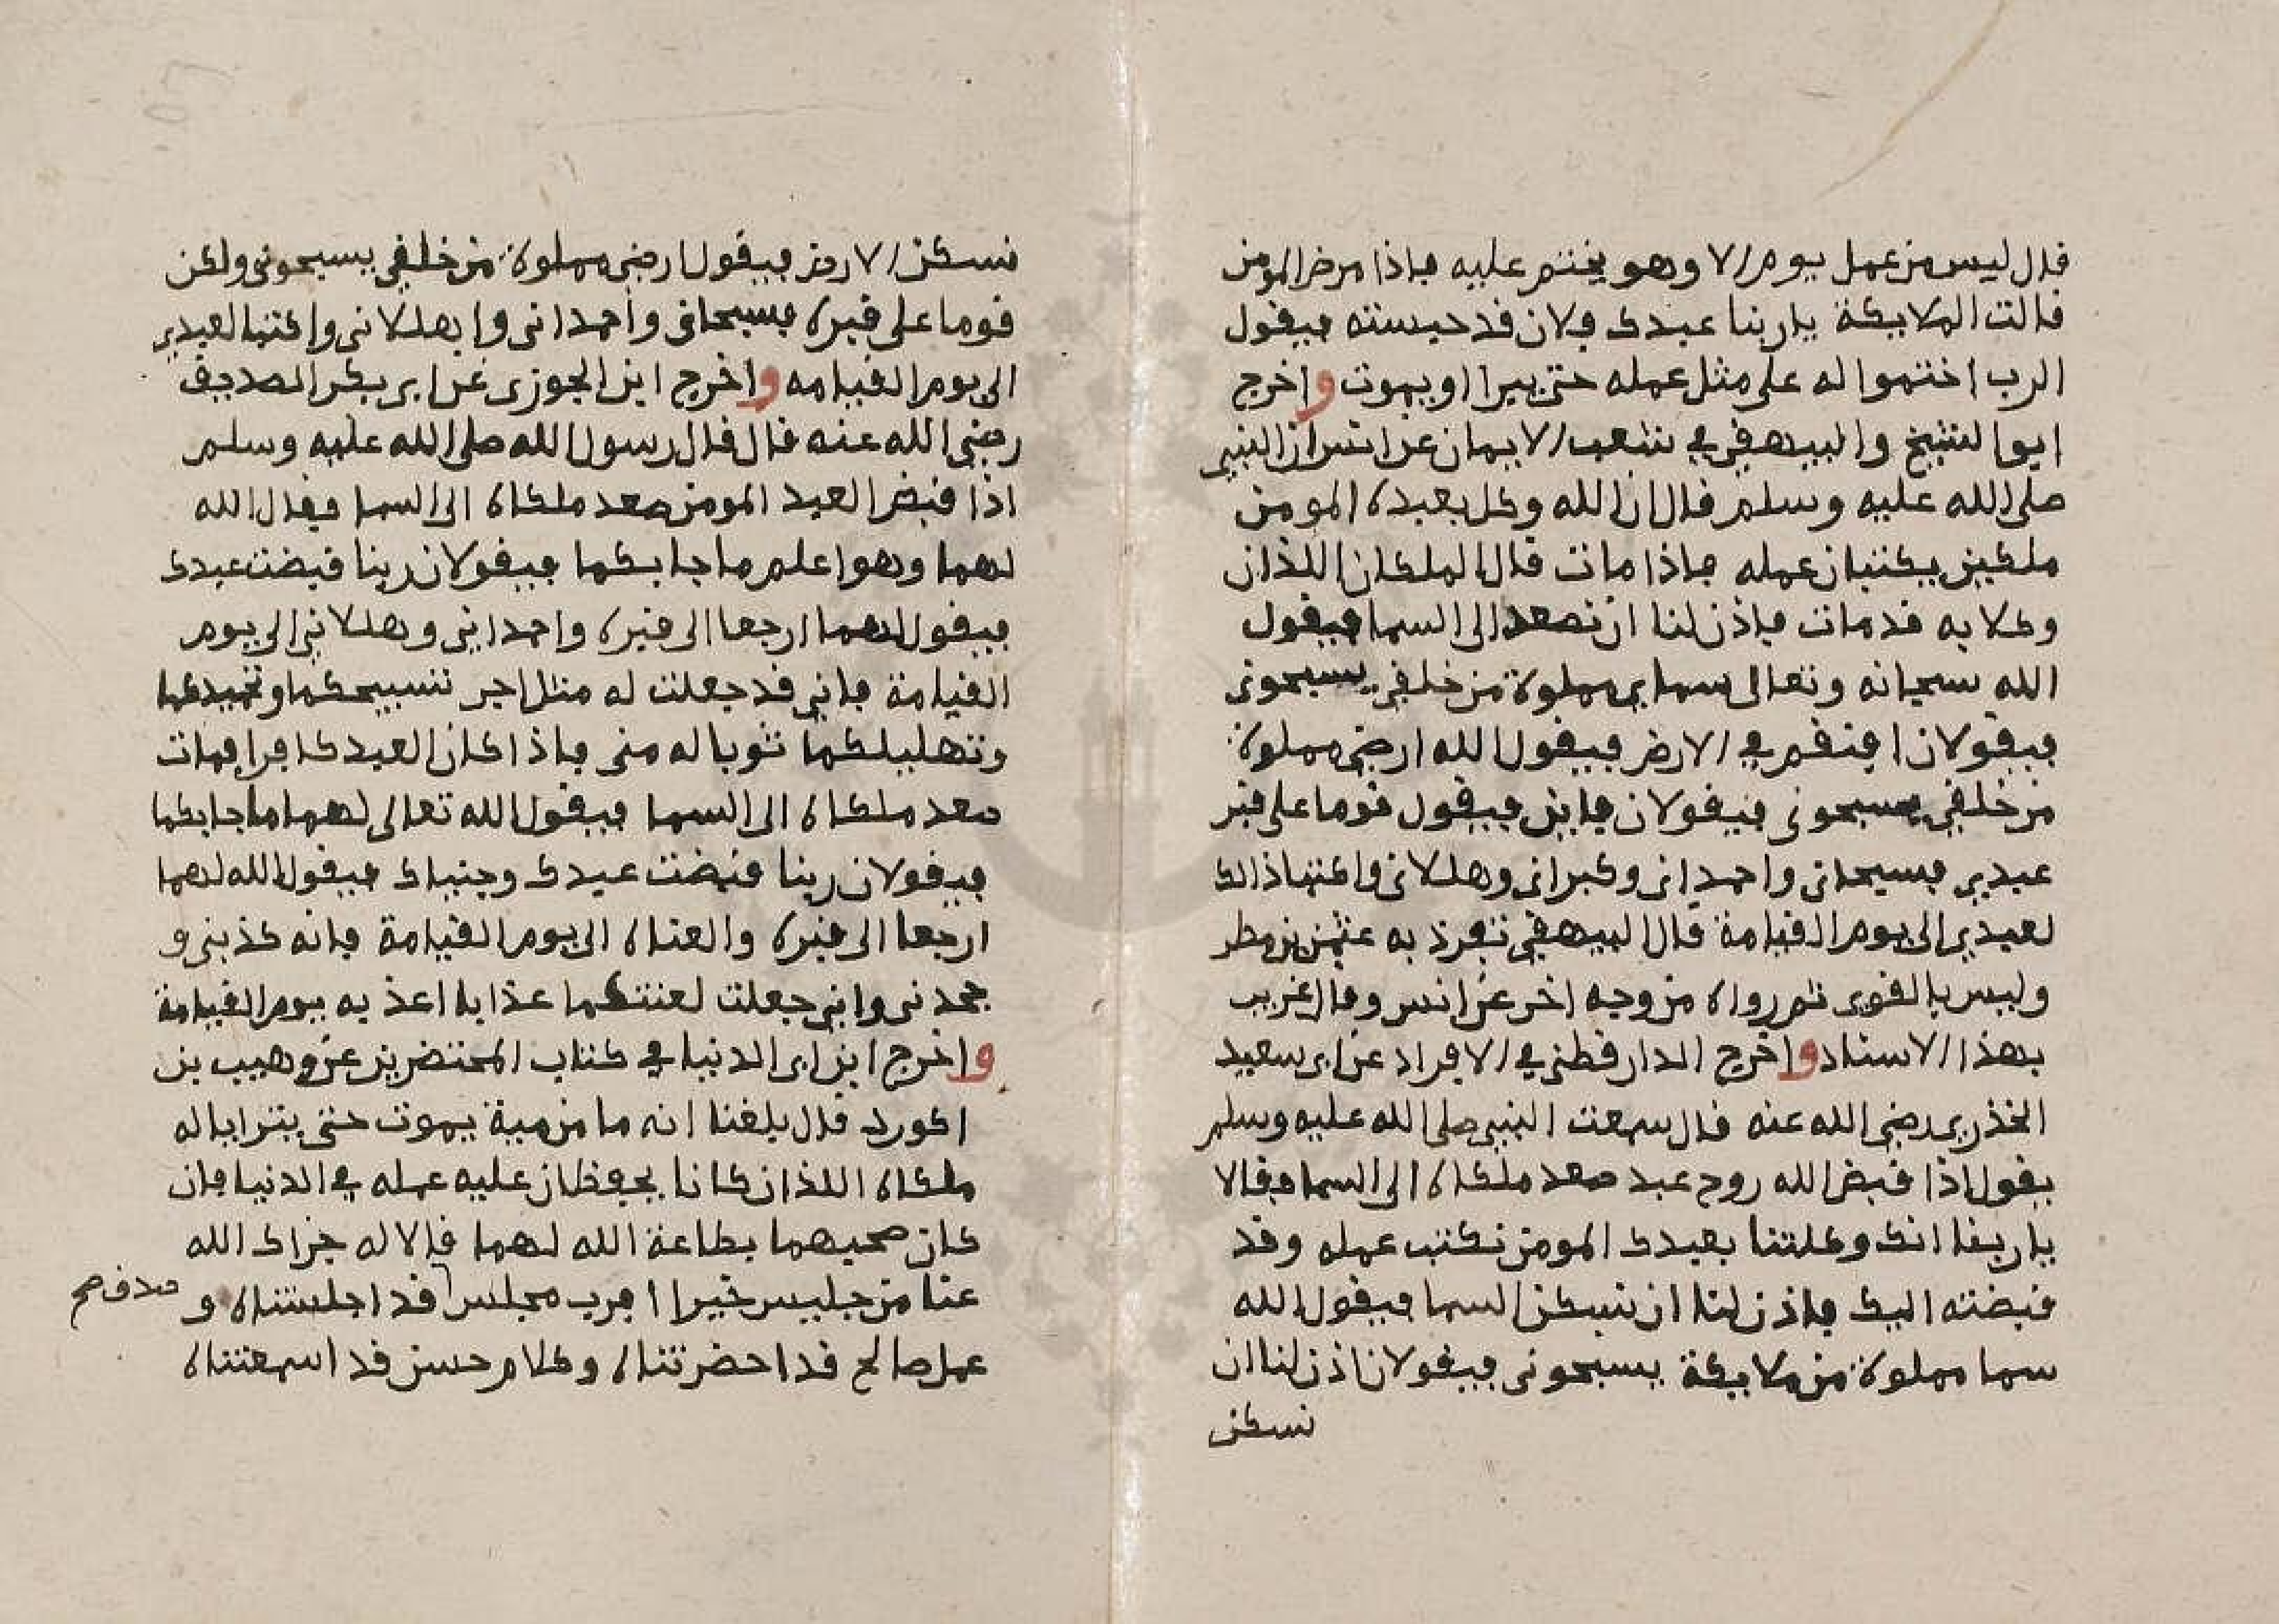 قال ليس من عمل يوم الا وهو يختم عليه فاذا مرض المومن
قالت الملايكة ياربنا عبدك فلان قد حبسته فيقول
الرب اختموا له على مثل عمله حتى يبرا او يموت واخرج
ابوا لشيخ والبيهقي في شعب الايمان عن انس ان النبي
صلى الله عليه وسلم قال ان الله وكل بعبده المومن
ملكين يكتبان عمله فاذا مات قال الملكان اللذان
وكلا به قد مات فاذن لنا ان نصعد الى السما فيقول
الله سبحانه وتعالى سماي مملوة من خلقي يسبحوني
فيقولان افنقم في الارض فيقول الله ارضي مملوة
من خلقي يسبحوني فيقولان فاين فيقول قوما على قبر
عبدي فسبحاني واحمداني وكبراني وهللاني واكتبا ذالك
لعبدي الى يوم القيامة قال البيهقي تفرد به عثمن بن مطر
وليس بالقوي ثم رواه من وجه اخر عن انس وقال غريب
بهذا الاسناد واخرج الدار قطني في الافراد عن ابي سعيد
الخذري رضي الله عنه قال سمعت النبي صلى الله عليه وسلم
يقول اذا قبض الله روح عبد صعد ملكاه الى السما فقالا
ياربنا انك وكلتنا بعبدك المومن نكتب عمله وقد
قبضته اليك فاذن لنا ان نسكن السما فيقول الله
سما مملوة من ملايكة يسبحوني فيقولان اذن لنا ان
نسكن
نسكن الارض فيقول ارضي مملوة من خلقي يسبحوني ولكن
قوما على قبره فسبحاني واحمداني وا بهللاني واكتبا لعبدي
الى يوم القيامه واخرج ابن الجوزي عن ابي بكر الصديق
رضي الله عنه قال قال رسول الله صلى الله عليه وسلم
اذا قبض العبد المومن صعد ملكاه الى السما فيقال الله
لهما وهو اعلم ما جا بكما فيقولان ربنا قبضت عبدك
فيقول لهما ارجعا الى قبره واحمداني وهللاني الى يوم
القيامة فاني قد جعلت له مثل اجر تسبيحكما وتحميدكما
وتهليلكما ثوبا له مني فاذا كان العبد كافرا فمات
صعد ملكاه الى السما فيقول الله تعالى لهما ما جا بكما
فيقولان ربنا قبضت عبدك وجيناك فيقول الله لهما
ارجعا الى قبره والعناه الى يوم القيامة فانه كذبني و
جحدني واني جعلت لعنتكما عذابا اعذ به يوم القيامة
واخرج ابن ابي الدنيا في كتاب المحتضرين عن وهيب بن
اكورد قال بلغنا انه ما من مية يموت حتى يترايا له
ملكاه اللذان كانا يحفظان عليه عمله في الدنيا فان
كان صحبهما بطاعة الله لهما قالا له جزاك الله
عنا من جليس خيرا افرب مجلس قد اجلستناه و
صدق صح
عمل صالح قد احضرتناه وكلام حسن قد اسمعتناه